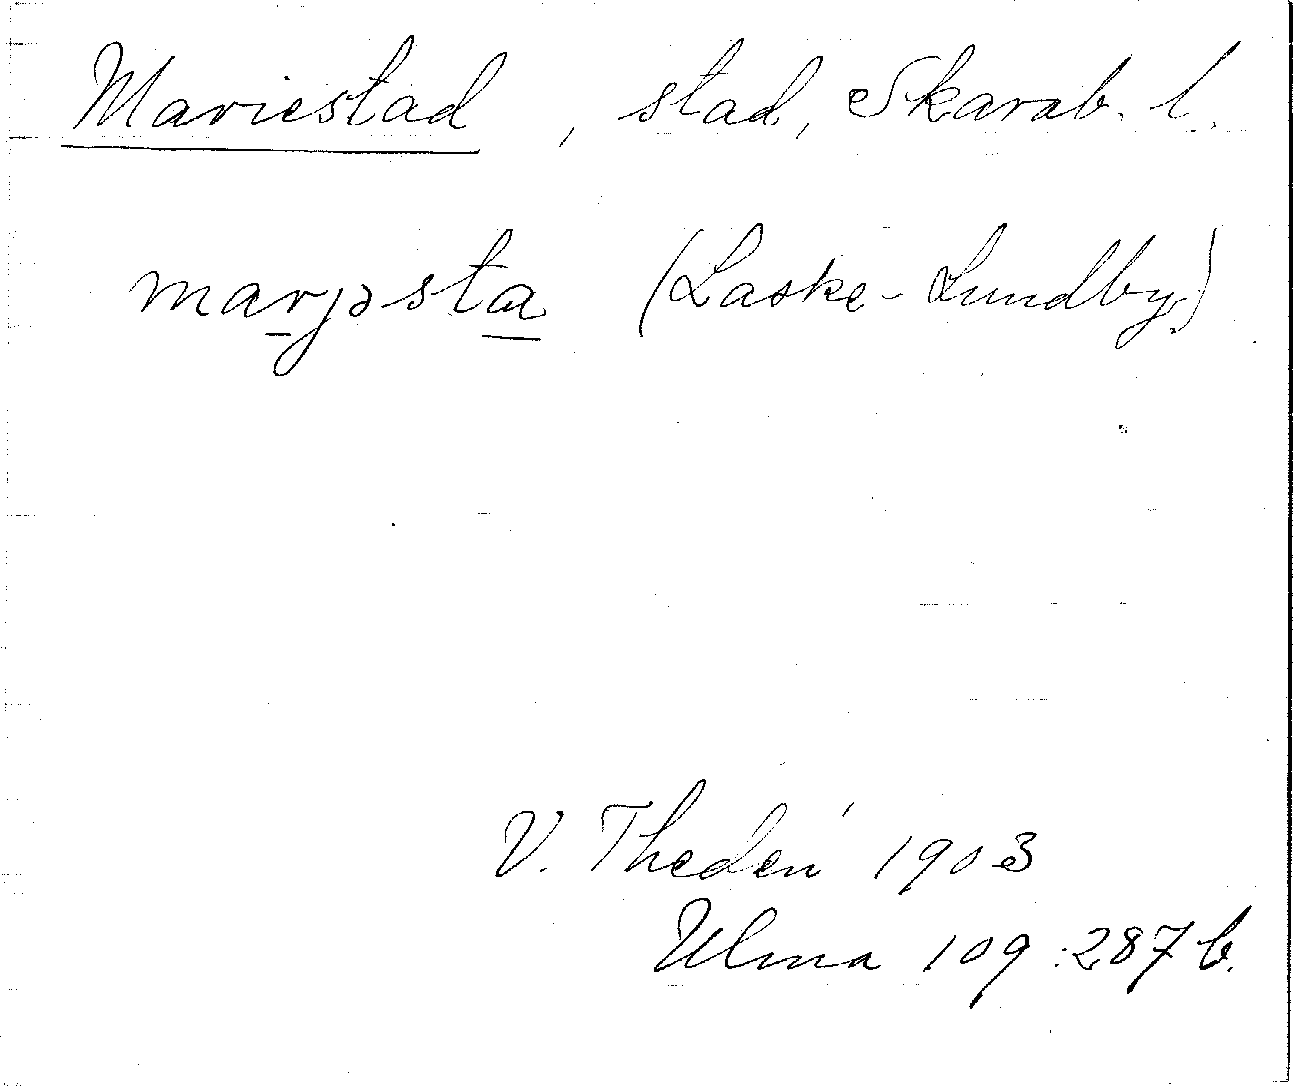 Mariestad, stad, Skarab. l.
marjəsta (Laske-Lundby)
V. Thedén 1903
Ulma 109:287 b.